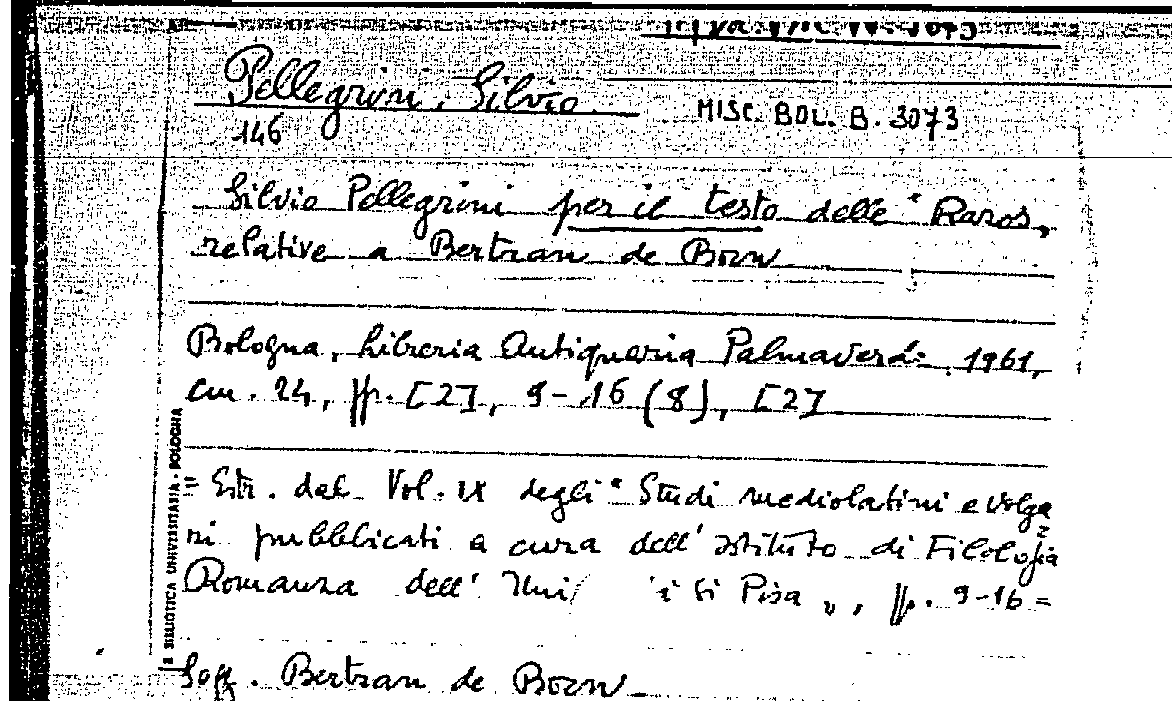 Pellegrini, Silvio.
MISC. BOL. B. 3073
146
Silvio Pellegrini per il testo delle "Razos"
relative a Bertran de Born
Bologna, Libreria Antiquaria Palmaverde, 1961,
cm. 24, pp. [2], 9-16 (8), [2]
= Estr. dal Vol. IX degli "Studi mediolatini e volga
ri pubblicati a cura dell'Istituto di Filologia
Romanza dell' Uni i Pisa", pp. 9-16 =
Sogg. Bertran de Born
BIBLIOTECA UNIVERSITARIA - BOLOGNA